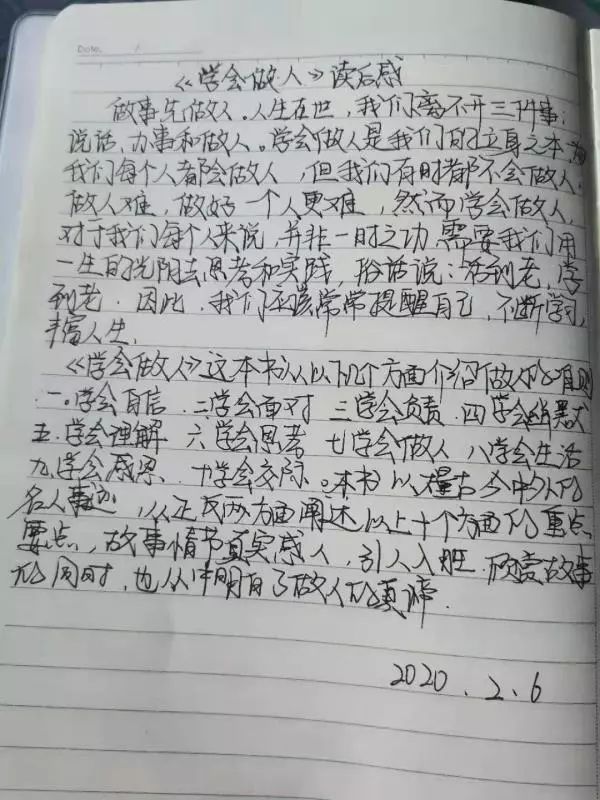 Date. /
《学会做人》读后感
做事先做人。人生在世,我们离不开三件事:
说话、办事和做人。学会做人是我们的立身之本,
我们每个人都会做人,但我们有时都不会做人。
做人难,做好一个人更难,然而学会做人,
对于我们每个人来说,并非一时之功,需要我们用
一生的光阴去思考和实践,俗话说:活到老,学
到老.因此,我们应该常常提醒自己,不断学习,
丰富人生.
《学会做人》这本书从以下几个方面介绍做人的准则
一.学会自信 二学会面对 三学会负责 四学会
五.学会理解 六学会思考 七学会做人 八学会生活
九学会感恩、十学会交际。本书以大量古今中外的
名人事迹,从正反两方面阐述以上十个方面的重点、
要点,故事情节真实感人,引人入胜.欣赏故事
的同时,也从中明白了做人的真谛.
2020.2.6